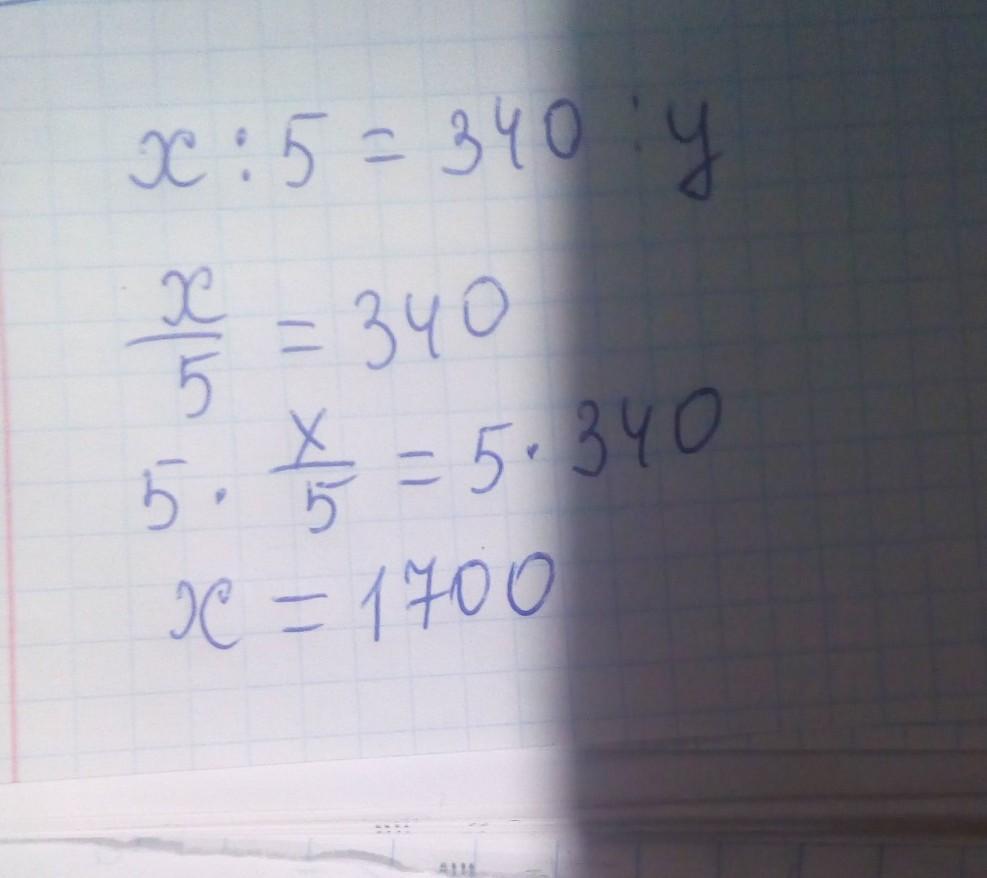 x : 5 = 340 : y
x/5 = 340
5 · x/5 = 5 · 340
x = 1700